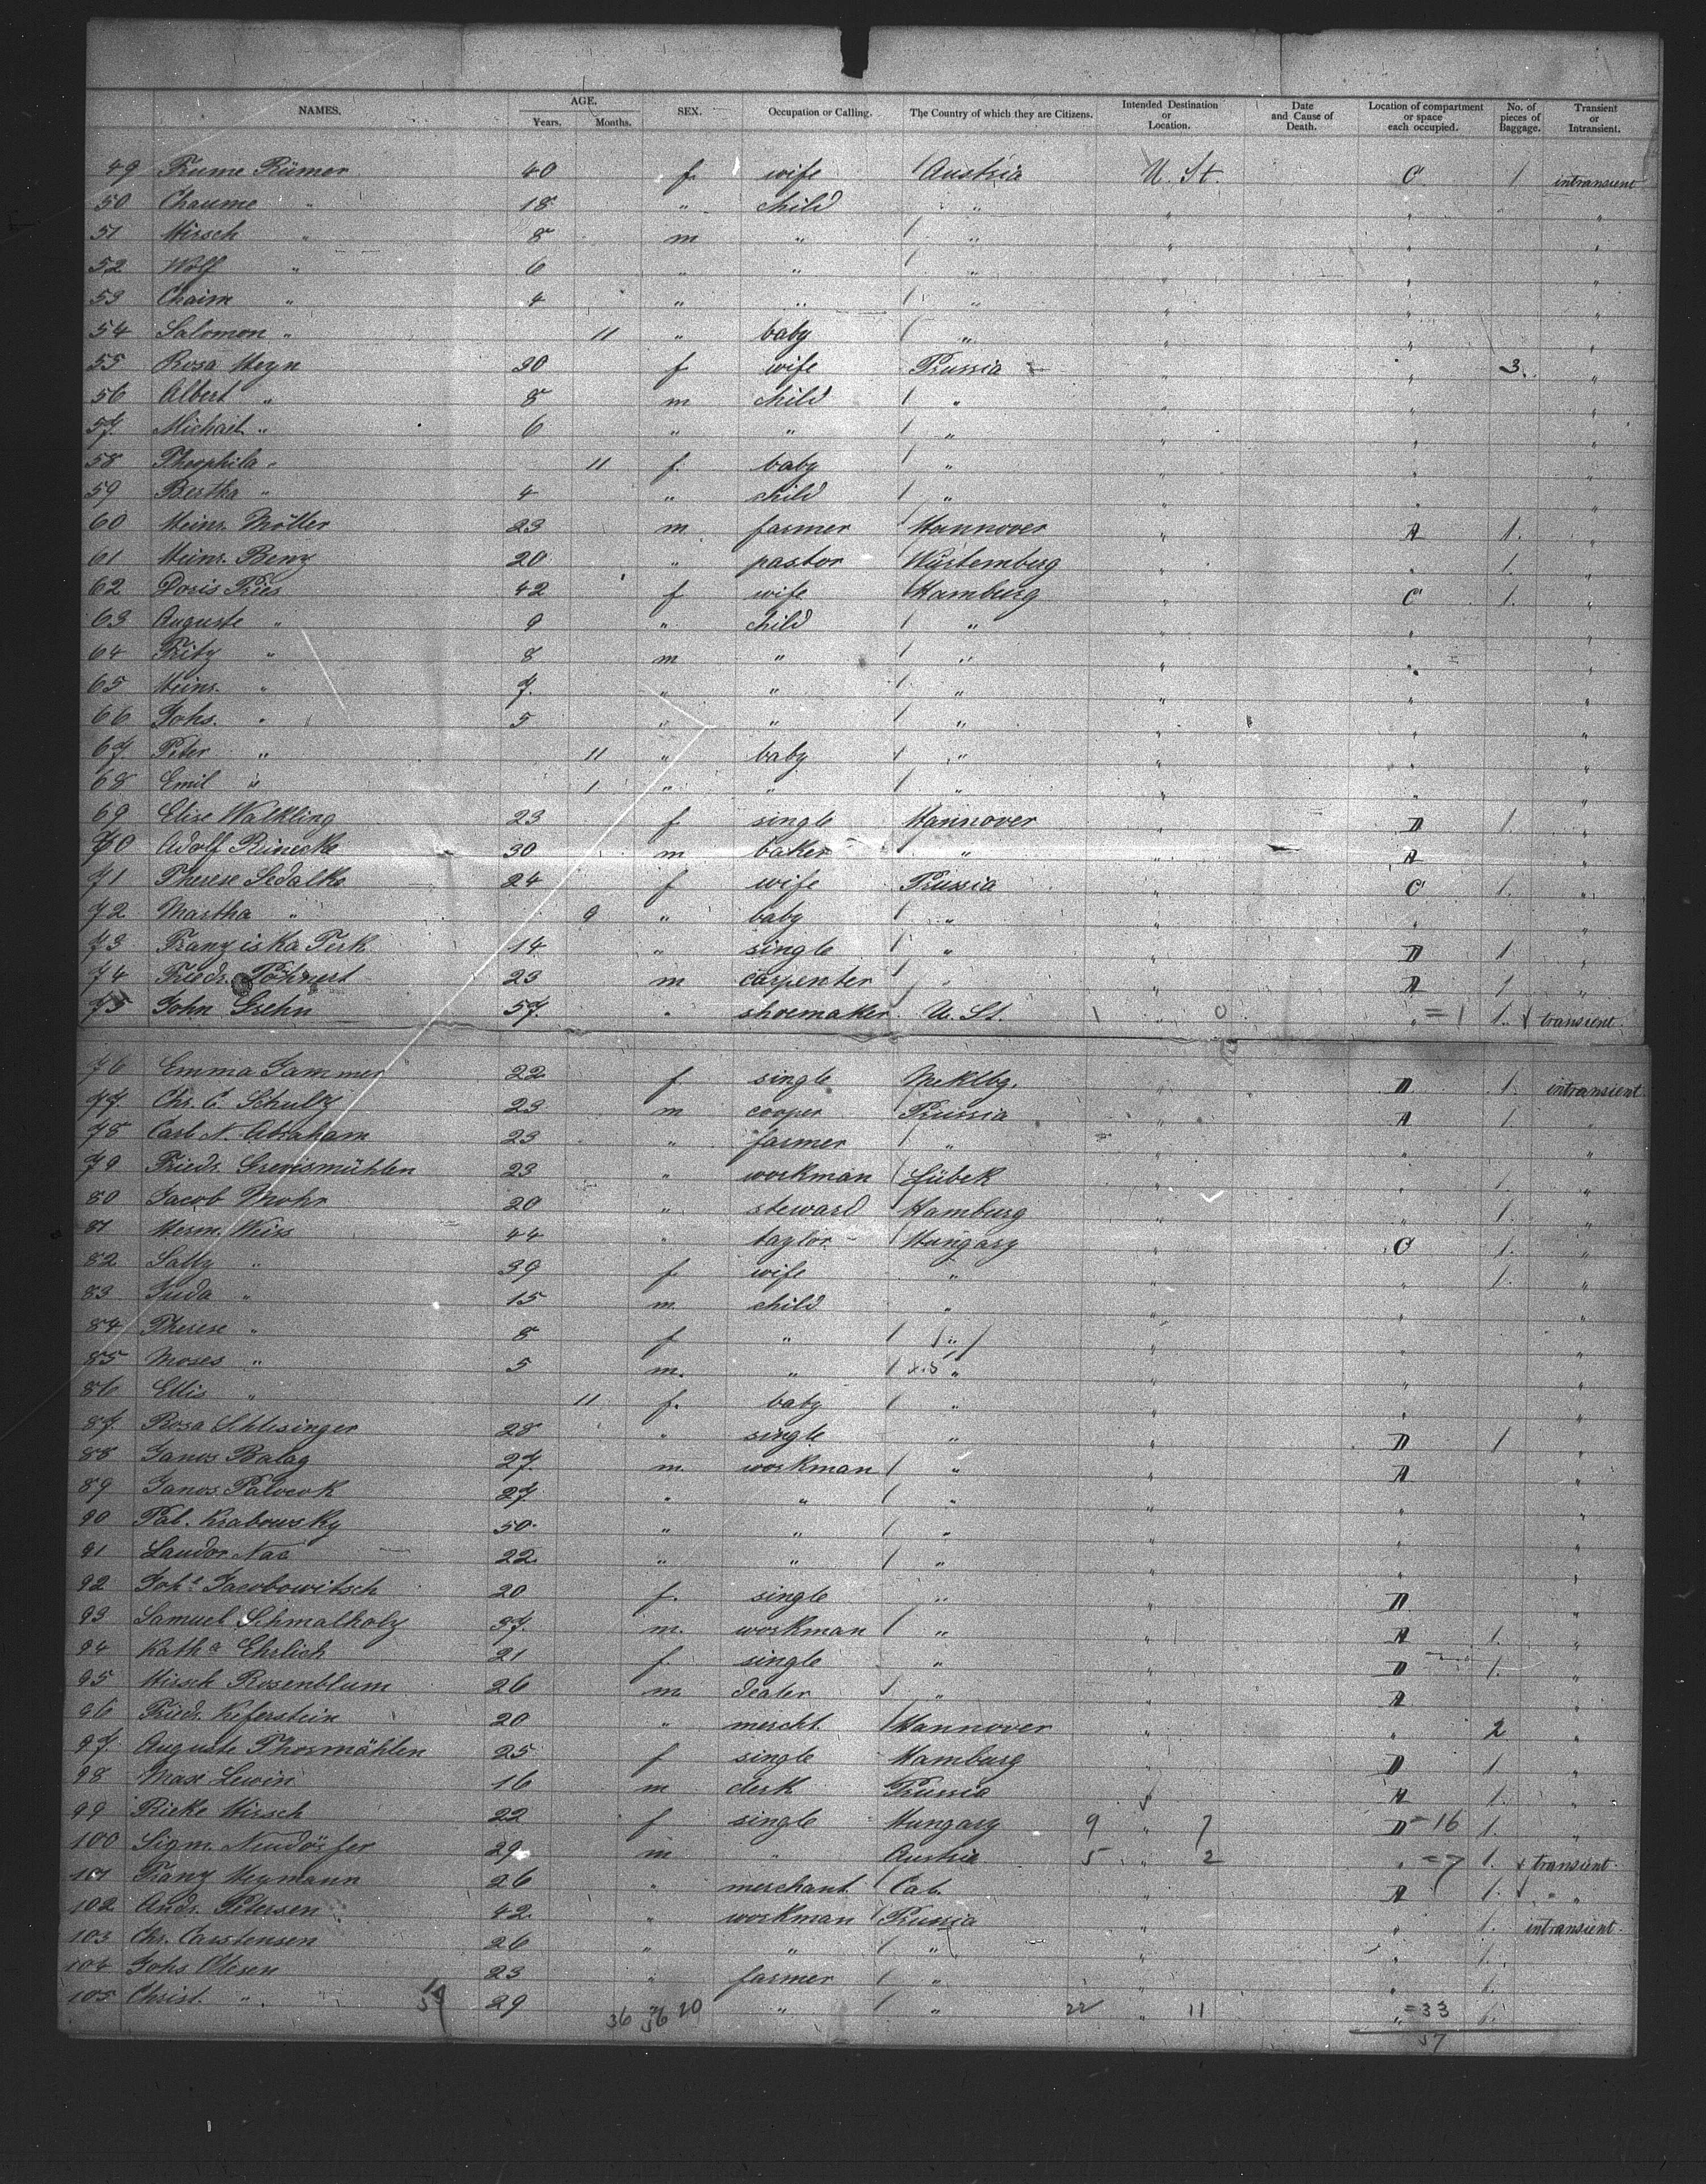 NAMES. AGE. Years. Months. SEX. Occupation or Calling. The Country of which they are Citizens. Intended Destination or Location. Date and Cause of Death. Location of compartment or space each occupied. No. of pieces of Baggage. Transient or Intransient.
49 Frume Rümer 40 f. wife Austria U. St. C 1 intransient
50 Chaume " 18 " child " " " " "
51 Hirsch " 8 m " " " " "
52 Wolf " 6 " " " " " "
53 Chaim " 4 " " " " " "
54 Salomon " 11 " baby " " " "
55 Rosa Heyn 30 f wife Prussia " " 3. "
56 Albert " 8 m child " " " "
57. Michael " 6 " " " " " "
58 Theophila " 11 f. baby " " " "
59 Bertha " 4 " child " " " "
60 Heinr. Möller 23 m. farmer Hannover " A 1. "
61 Heinr. Benz 20 " pastor Würtemberg " " 1. "
62 Doris Fries 42 f wife Hamburg " C 1. "
63 Auguste " 9 " child " " " "
64 Fritz " 8 m " " " " "
65 Heinr. " 7. " " " " " "
66 Johs. " 5 " " " " " "
67 Peter " 11 " baby " " " "
68 Emil " 1 " " " " " "
69 Elise Walkling 23 f single Hannover " D 1 "
70 Adolf Reinecke 30 m baker " " A "
71 Therese Sedalke 24 f wife Prussia " C 1. "
72 Martha " 9 " baby " " " "
73 Franziska Tirk 14 " single " " D 1 "
74 Friedr. Pöhnert 23 m carpenter " " A 1 "
75 John Grehn 57. " shoemaker U. St. 1 " 0 " =1 1. transient.
76 Emma Jammer 22 f single Meklbg. " D 1. intransient
77. Chr. C. Schultz 23 m cooper Prussia " A 1 "
78 Carl N. Abraham 23 " farmer " " " "
79 Friedr. Grevismühlen 23 " workman Lübek " " 1. "
80 Jacob Mohr 20 " steward Hamburg " " 1. "
81 Herm. Weiss 44 " taylor Hungary " C 1. "
82 Sally " 39 f. wife " " " 1. "
83 Juda " 15 m. child " " " "
84 Therese " 8 f " " " " "
85 Moses " 5 m. " " " " "
86 Ellis " 11 f. baby " " " "
87. Rosa Schlesinger 28 " single " " D 1 "
88 Janos Balag 27. m. workman " " A "
89 Janos Palocok 27 " " " " " "
90 Pal. Krabowsky 50. " " " " " "
91 Laudor Nac 22. " " " " " "
92 Joh.ª Jacobowitsch 20 f. single " " D "
93 Samuel Schmalholz 37. m. workman " " A 1. "
94 Kath.ª Ehrlich 21 f. single " " D 1. "
95 Hirsch Rosenblum 26 m dealer " " A "
96 Friedr. Keferstein 20 " mercht. Hannover " " 2 "
97. Auguste Thormählen 25 f single Hamburg " D 1 "
98 Max Lewin 16 m clerk Prussia " A 1. "
99 Rieke Hirsch 22 f single Hungary 9 " 7 D =16 1. "
100 Sigm. Neudörfer 29 m " Austria 5 " 2 " =7 1. transient.
101 Franz Heymann 26 " merchant Cal. " A 1. "
102 Andr. Petersen 42 " workman Prussia " " 1. intransient.
103 Chr. Carstensen 26 " " " " " 1. "
104 Johs. Olesen 23 " farmer " " " 1. "
105 Christ. " 29 " " 22 " 11 " =33 1.
36 36 20
57